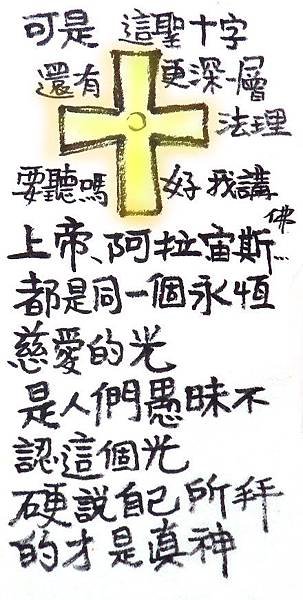 可是 這聖十字
還有 更深一層
法理
要聽嗎 好 我講
佛
上帝、阿拉宙斯…
都是同一個永恆
慈愛的光
是人們愚昧不
認這個光
硬説自己所拜
的才是真神